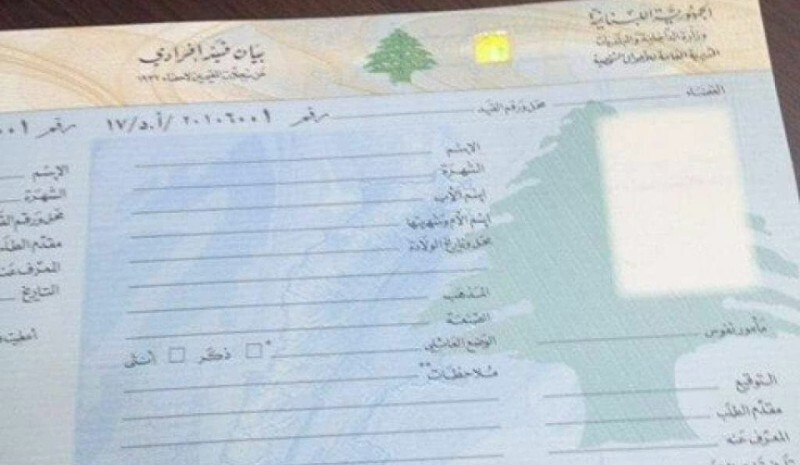 الجمهورية اللبنانية
وزارة الداخلية والبلديات
المديرية العامة للأحوال الشخصية
بيان قيد إفرادي
عن سجلات المقيمين لإحصاء ١٩٣٢
القضاء
محل ورقم القيد
رقم ٢٠١٠٦٠٠١ /أ.د/١٧
رقم
الإسم
الشهرة
إسم الأب
إسم الأم وشهرتها
محل وتاريخ الولادة
المذهب
الصنعة
الوضع العائلي
* ذكر أنثى
ملاحظات**
مأمور نفوس
التوقيع
مقدّم الطلب
المعرّف عنه
الإسم
الشهرة
محل ورقم
مقدّم
المعرّف عنه
التاريخ
أعطيت